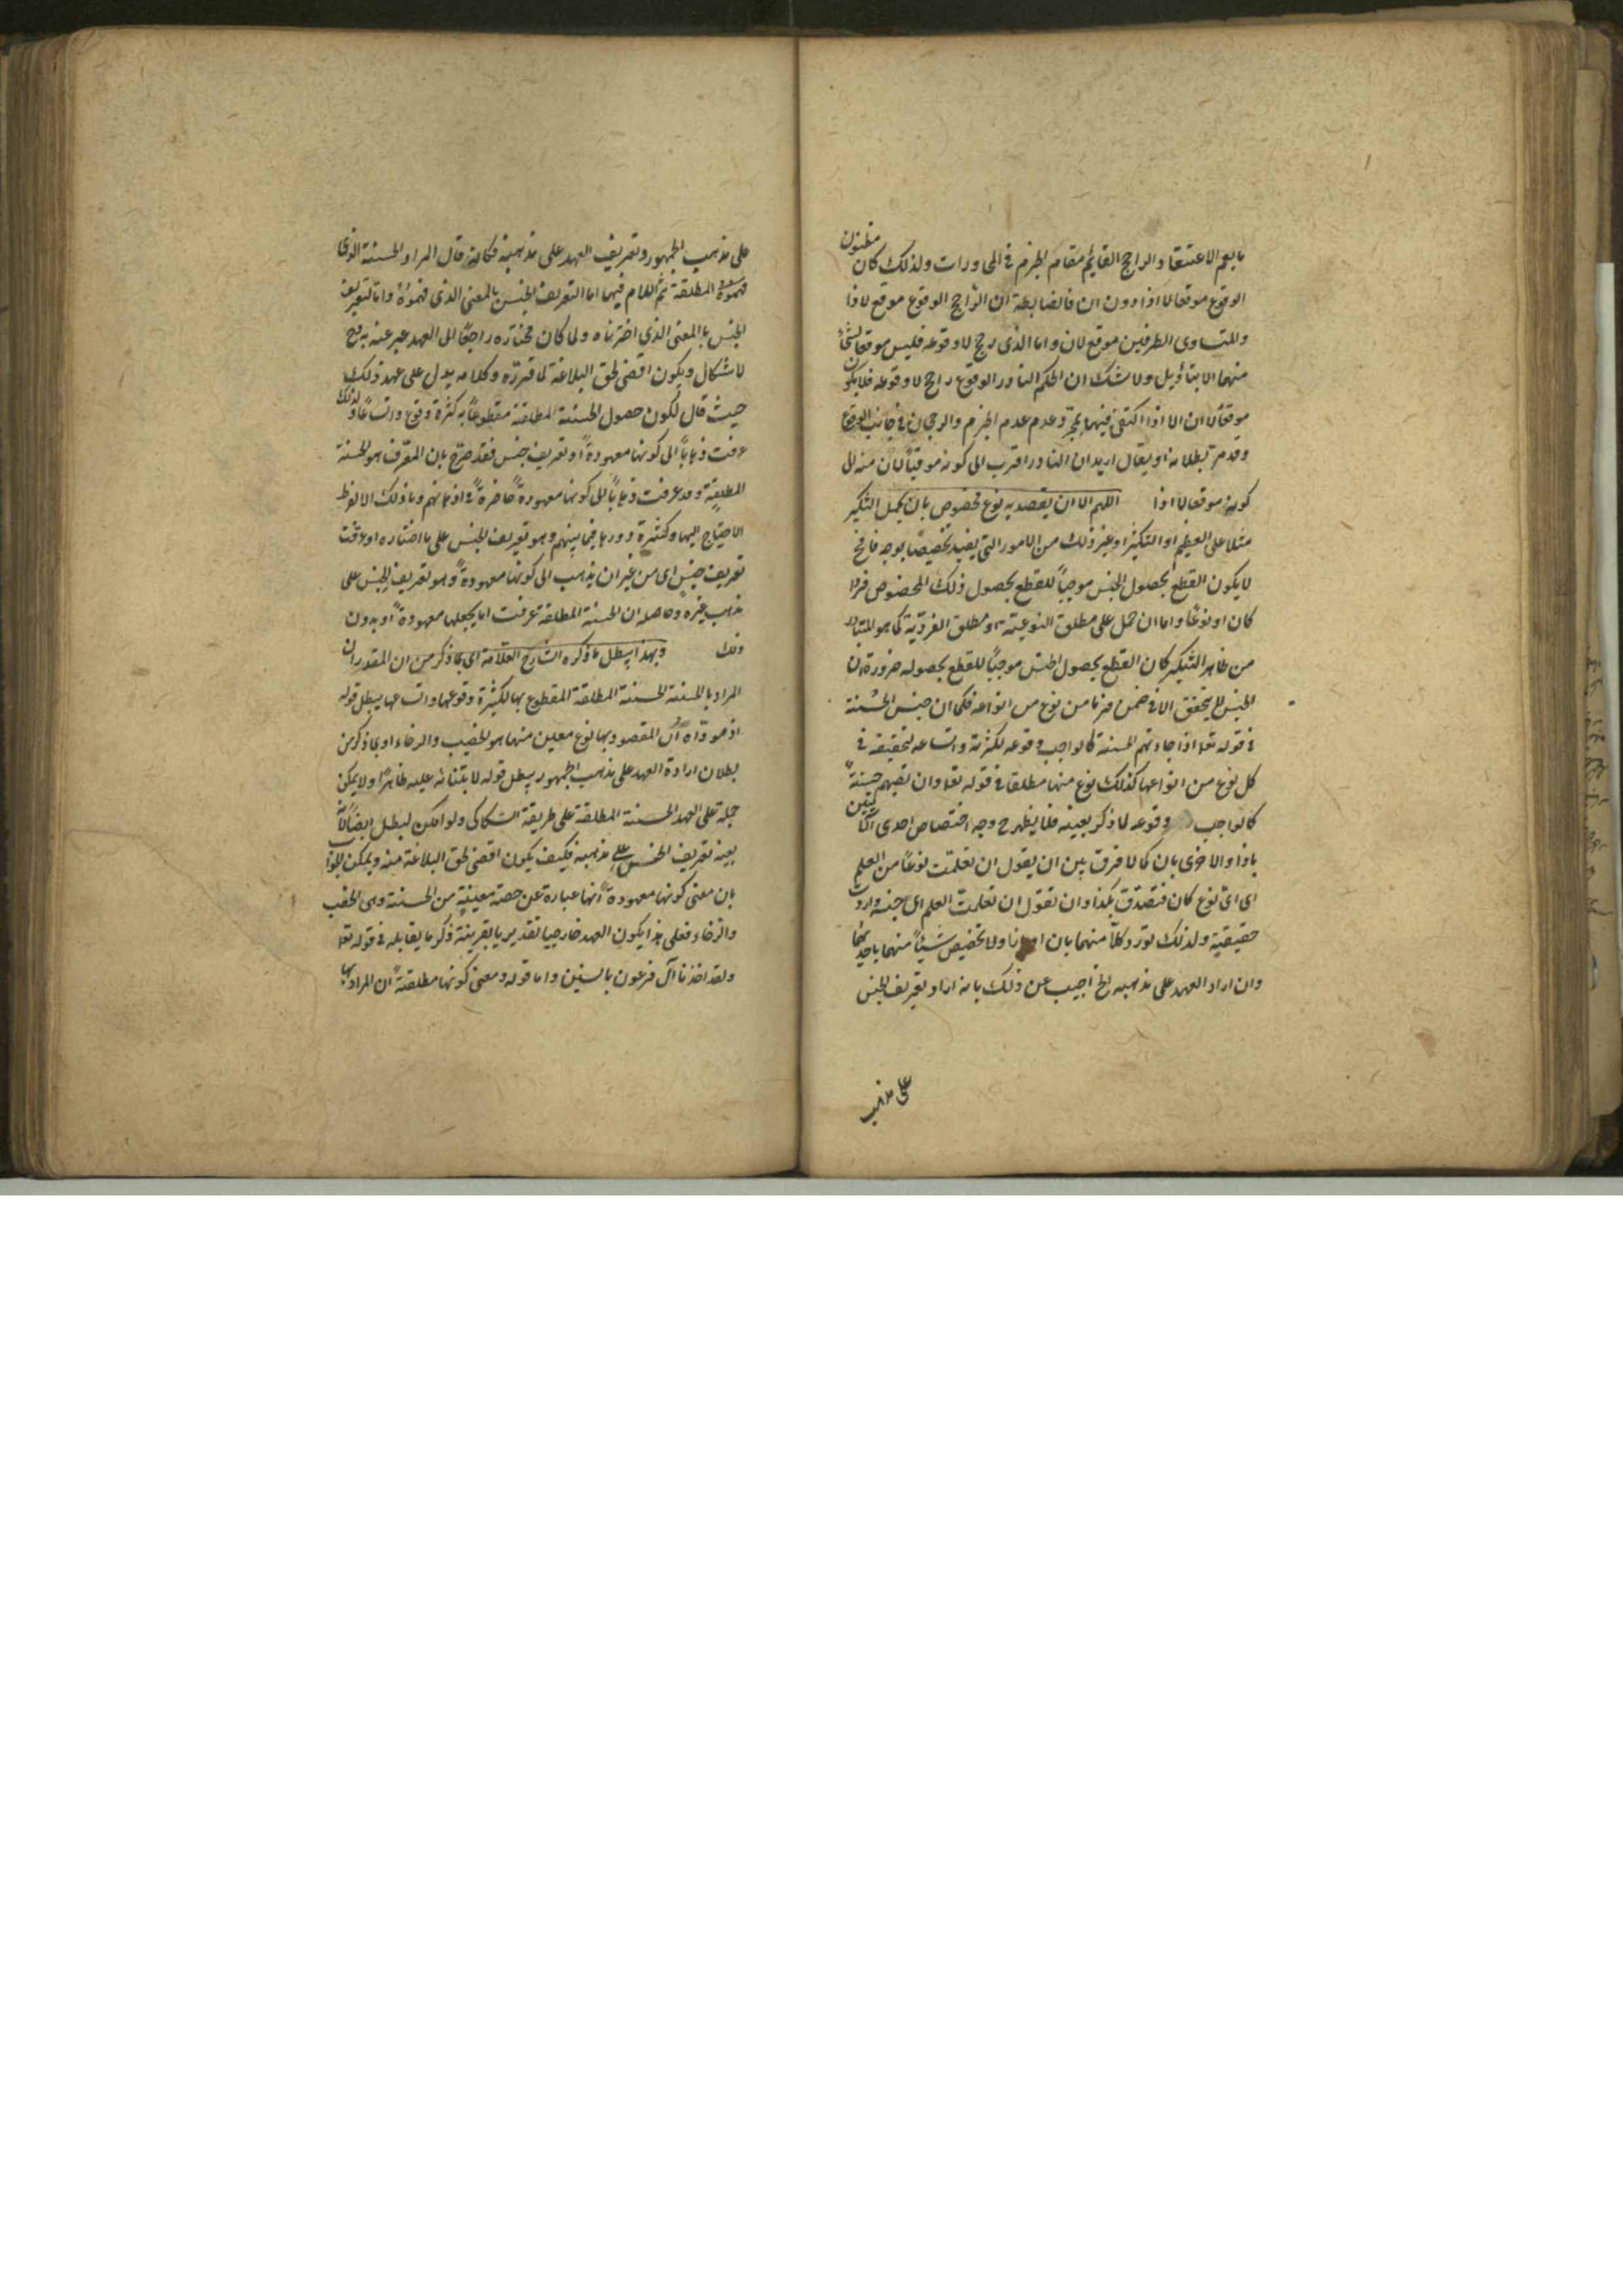 ما يعم الاعتقاد الراجح القايم مقام الجزم في المحاورات ولذلك كان مظنون
الوقوع موقعا لاذا دون ان فالضابطة ان الراجح الوقوع موقع لاذا
والمتساوى الطرفين موقع لان واما الذى رجح لا وقوعه فليس موقعا لشئ
منهما الا بتاويل ولا شك ان الحكم النادر الوقوع راجح لا وقوعه فلا يكون
موقعا لان الا اذا اكتفى فيها بمجرد عدم الجزم والرجحان في جانب الوقوع
وقد مر بطلانه او يقال اريد ان النادر اقرب الى كونه موقعا لان منه الى
كونه موقعا لاذا اللهم الا ان يقصد به نوع مخصوص بان يحمل التنكير
مثلا على التعظيم او التكثير او غير ذلك من الامور التي يفيد تخصيصا بوجه ما فح
لا يكون القطع بحصول الجنس موجبا للقطع بحصول ذلك المخصوص فردا
كان او نوعا واما ان حمل على مطلق النوعية او مطلق الفردية كما هو المتبادر
من ظاهر التنكير كان القطع بحصول الجنس موجبا للقطع بحصوله ضرورة ان
الجنس لا يتحقق الا في ضمن فرد ما من نوع من انواعه فكما ان جنس الحسنة
في قوله تعا اذا جاءتهم الحسنة كالواجب وقوعه لكثرته واتساعه لتحققه في
كل نوع من انواعها كذلك نوع منها مطلقا في قوله تعا وان تصبهم حسنة
كالواجب وقوعه لما ذكر بعينه فلا يظهر ح وجه اختصاص احدى
باذا والاخرى بان كما لا فرق بين ان يقول ان تعلمت نوعا من العلم
اى اى نوع كان فتصدق بكذا وان تقول ان تعلمت العلم اى جنسه واردت
حقيقته ولذلك تورد كلا منهما بان او اذا ولا تخصيص شيئا منهما باحديهما
وان اراد العهد على مذهبه الخ اجيب عن ذلك بانه اراد تعريف الجنس
على مذهب
على مذهب الجمهور وتعريف العهد على مذهبه فكانه قال المراد الحسنة
المطلقة ثم اللام فيها اما التعريف الجنس بالمعنى الذى واما لتعريف
الجنس بالمعنى الذى اخترناه ولما كان مختاره راجعا الى العهد عبر عنه به فح
لا اشكال ويكون اقضى لحق البلاغة لما قرره وكلامه يدل على عهد ذلك
حيث قال لكون حصول الحسنة المطلقة مقطوعا به كثرة وقوع واتساعا ولذلك
عرفت ذهابا الى كونها معهودة او تعريف جنس فقد صرح بان المعرف هو الحسنة
المطلقة وقد عرفت ذهابا الى كونها معهودة حاضرة في اذهانهم وما ذلك الا لفرط
الاحتياج اليها وكثرة دورها فيما بينهم وهو تعريف الجنس على ما اختاره او عرفت
تعريف جنس اى من غير ان يذهب الى كونها معهودة وهو تعريف الجنس على
مذهب غيره وحاصله ان الحسنة المطلقة عرفت اما بجعلها معهودة او بدون
ذلك وبهذا يبطل ما ذكره الشارح العلامة اى بما ذكر من ان المقدر ان
المراد بالحسنة الحسنة المطلقة المقطوع بها لكثرة وقوعها واتساعها يبطل قوله
ان المقصود بها نوع معين منها هو الخصب والرخاء او بما ذكر من
بطلان ارادة العهد على مذهب الجمهور يبطل قوله لابتنائه عليه ظاهرا ولا يمكن
حمله على العهد الحسنة المطلقة على طريقة السكاكى ولو امكن لبطل ايضا لانه
بعينه تعريف الجنس على مذهبه فكيف يكون اقضى لحق البلاغة منه ويمكن الجواب
بان معنى كونها معهودة انها عبارة عن حصة معينة من الحسنة وهى الخصب
والرخاء فعلى هذا يكون العهد خارجيا تقديريا بقرينة ذكر ما يقابله في قوله تعا
ولقد اخذنا آل فرعون بالسنين واما قوله ومعنى كونها مطلقة ان المراد بها